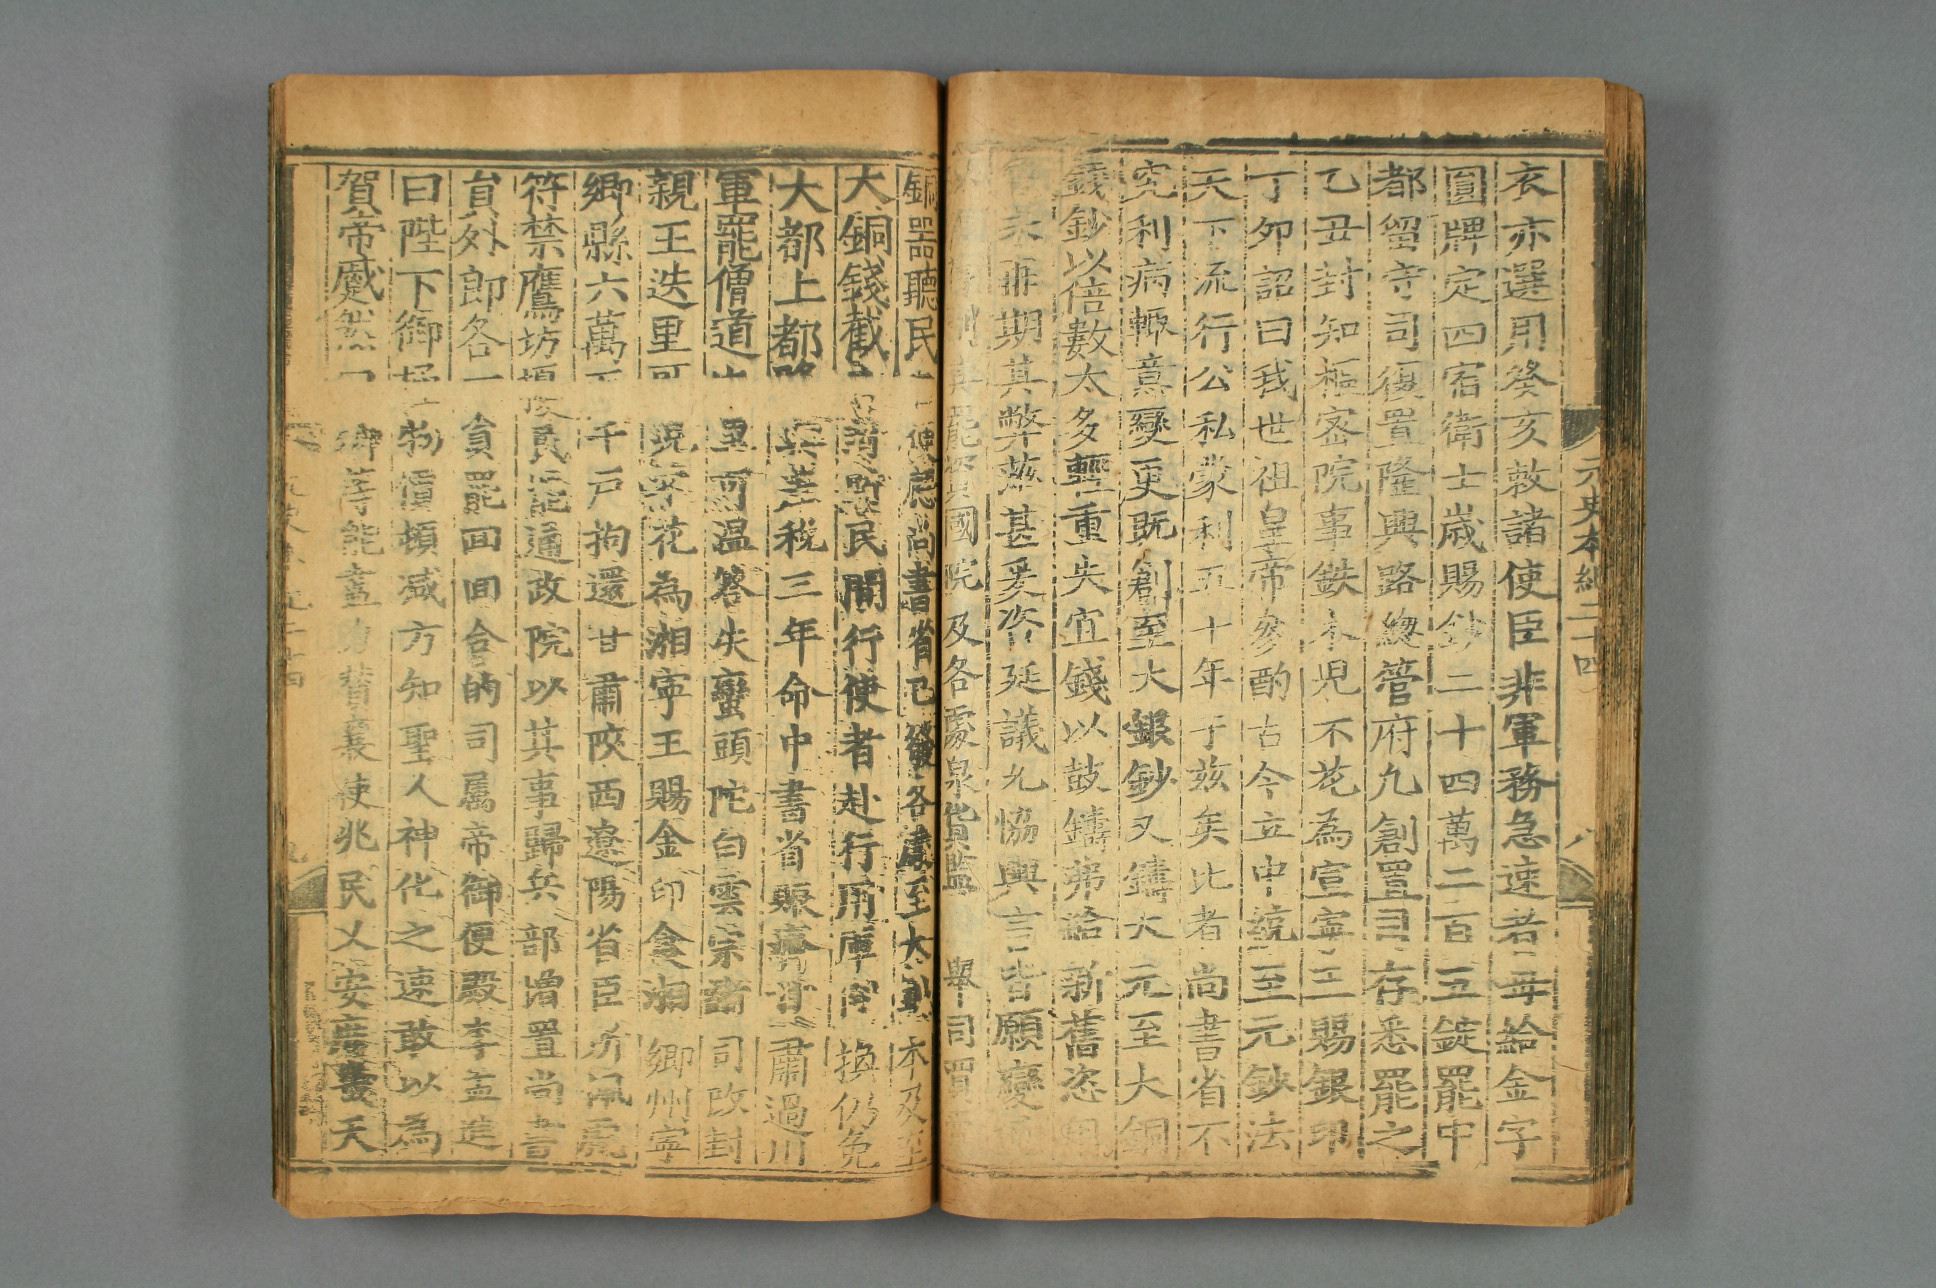 元史本紀二十四
八
衣亦選用癸亥敕諸使臣非軍務急速者毋給金字
圓牌定四宿衛士歲賜鈔二十四萬二百五錠罷中
都留守司復置隆興路緫管府凡創置司存悉罷之
乙丑封知樞密院事鉄木兒不花為宣寧王賜銀印
丁夘詔曰我世祖皇帝叅酌古今立中統至元鈔法
天下流行公私蒙利五十年于玆矣比者尚書省不
究利病輙意變更既創至大銀鈔又鑄大元至大銅
錢鈔以倍數太多輕重失宜錢以鼓鑄弗給新舊恣用
未再期其弊滋甚爰咨廷議允協輿言皆願變
罷資國院及各處泉貨監 舉司買
銅器聽民 使應尚書省已發各處至大鈔本及至
大銅錢截 民間行使者赴行用庫 換仍免
大都上都 差稅三年命中書省賑 甘肅過川
軍罷僧道 里可溫荅失蠻頭陀白雲宗諸司改封
親王迭里哥 兒不花為湘寧王賜金印食湘鄉州寧
鄉縣六萬 千戸拘還甘肅陜西遼陽省臣所佩虎
符禁鷹坊 罷通政院以其事歸兵部增置尚書
員外郎各一 員罷回回合的司屬帝御便殿李孟進
曰陛下御極 物價頓減方知聖人神化之速敢以為
賀帝蹙然曰 卿等能盡力贊襄使兆民乂安庶 天